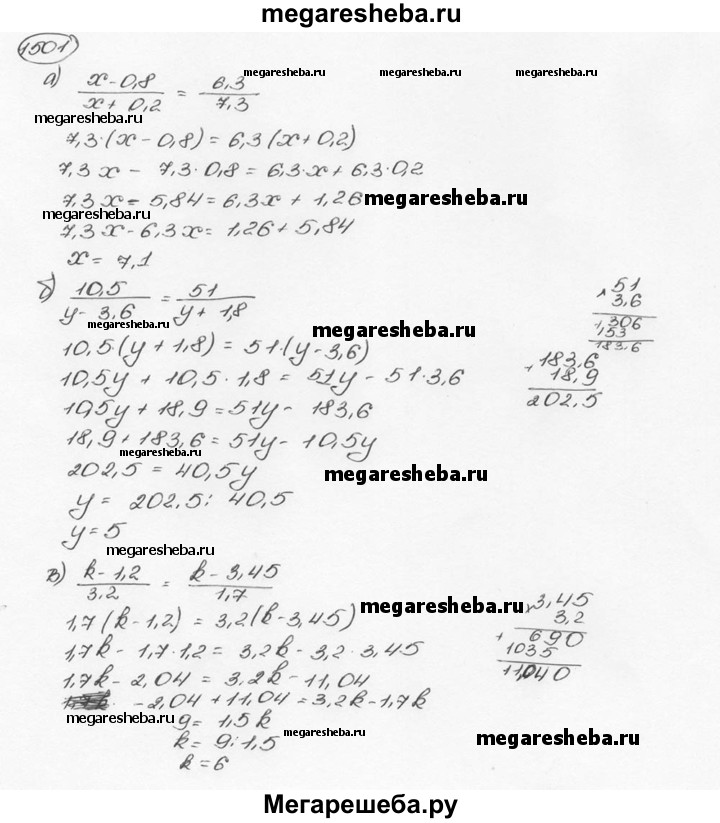 megaresheba.ru
1501)
а) (x-0,8)/(x+0,2) = 6,3/7,3
megaresheba.ru megaresheba.ru
megaresheba.ru
7,3·(x-0,8)=6,3(x+0,2)
7,3x - 7,3·0,8=6,3·x+6,3·0,2
7,3x-5,84=6,3x+1,26
megaresheba.ru
megaresheba.ru
7,3x-6,3x=1,26+5,84
x=7,1
б) 10,5/(y-3,6) = 51/(y+1,8)
megaresheba.ru
megaresheba.ru
10,5·(y+1,8)=51·(y-3,6)
10,5y+10,5·1,8=51y-51·3,6
10,5y+18,9=51y-183,6
18,9+183,6=51y-10,5y
megaresheba.ru
202,5=40,5y
megaresheba.ru
y=202,5:40,5
y=5
51
3,6
1,306
153
183,6
+183,6
18,9
202,5
megaresheba.ru
в) (k-1,2)/3,2 = (k-3,45)/1,7
megaresheba.ru
1,7(k-1,2)=3,2(k-3,45)
1,7k-1,7·1,2=3,2k-3,2·3,45
1,7k-2,04=3,2k-11,04
-2,04+11,04=3,2k-1,7k
megaresheba.ru
9=1,5k
megaresheba.ru
k=9:1,5
megaresheba.ru
k=6
3,45
3,2
+690
1035
11,040
Мегарешеба.ру